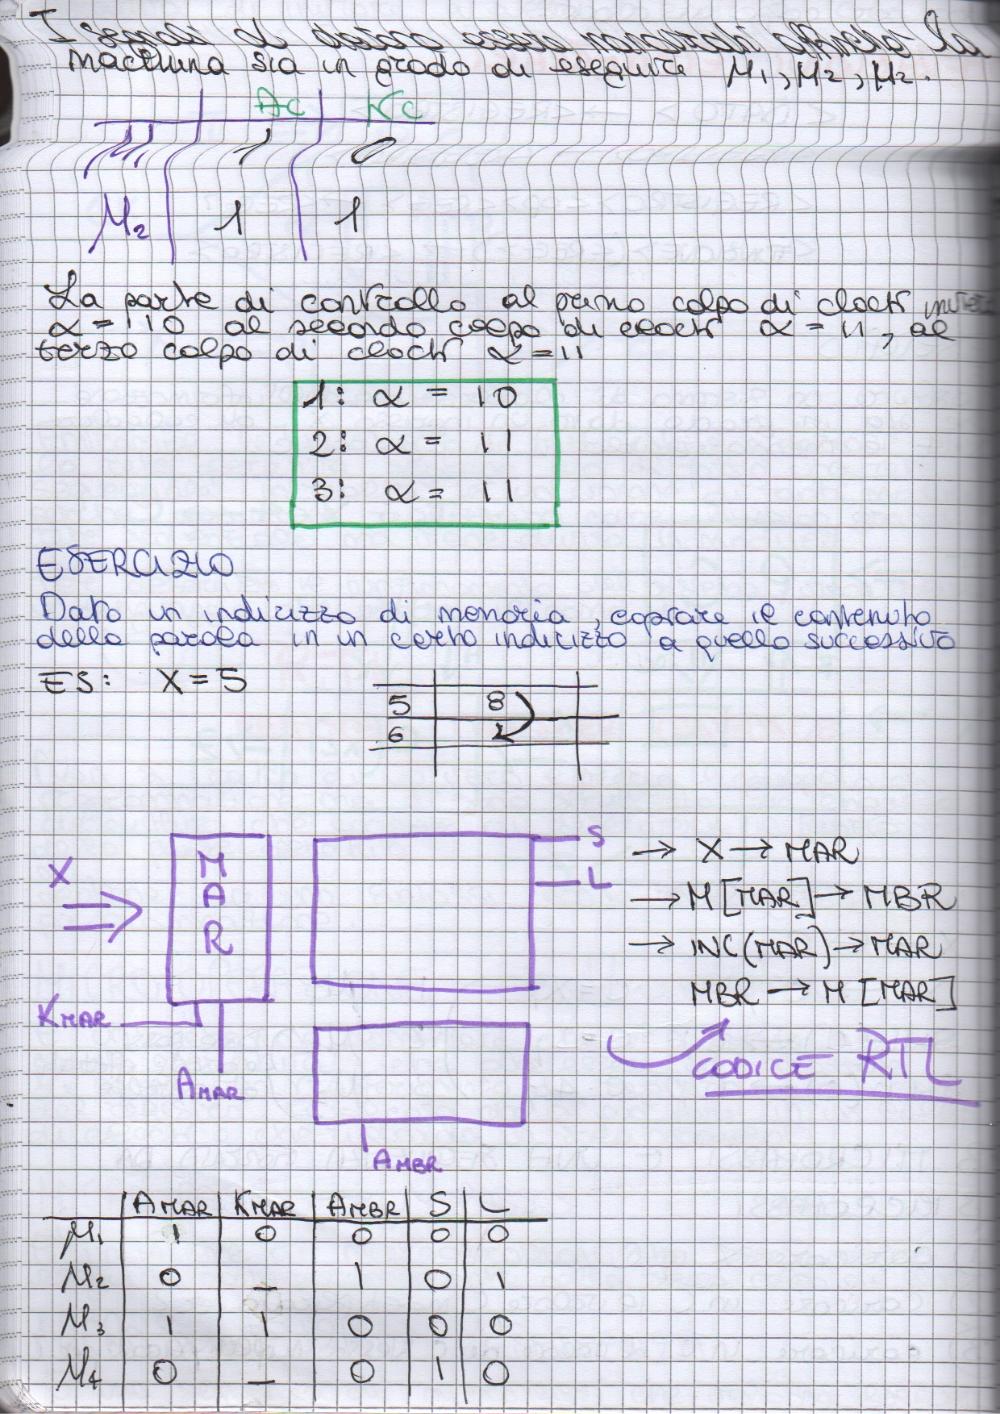 I segnali α devono essere affinché la
macchina sia in grado di eseguire μ1, μ2, μ2.
Ac Kc
μ1 1 0
μ2 1 1
La parte di controllo al primo colpo di clock
α = 10 al secondo colpo di clock α = 11, al
terzo colpo di clock α = 11
1: α = 10
2: α = 11
3: α = 11
ESERCIZIO
Dato un indirizzo di memoria, copiare il contenuto
della parola in un certo indirizzo a quello successivo
ES: X = 5
5 8
6
X
MAR
S
L
KMAR
AMAR
AMBR
→ X → MAR
→ M[MAR] → MBR
→ INC(MAR) → MAR
MBR → M[MAR]
CODICE RTL
AMAR KMAR AMBR S L
μ1 1 0 0 0 0
μ2 0 _ 1 0 1
μ3 1 1 0 0 0
μ4 0 _ 0 1 0